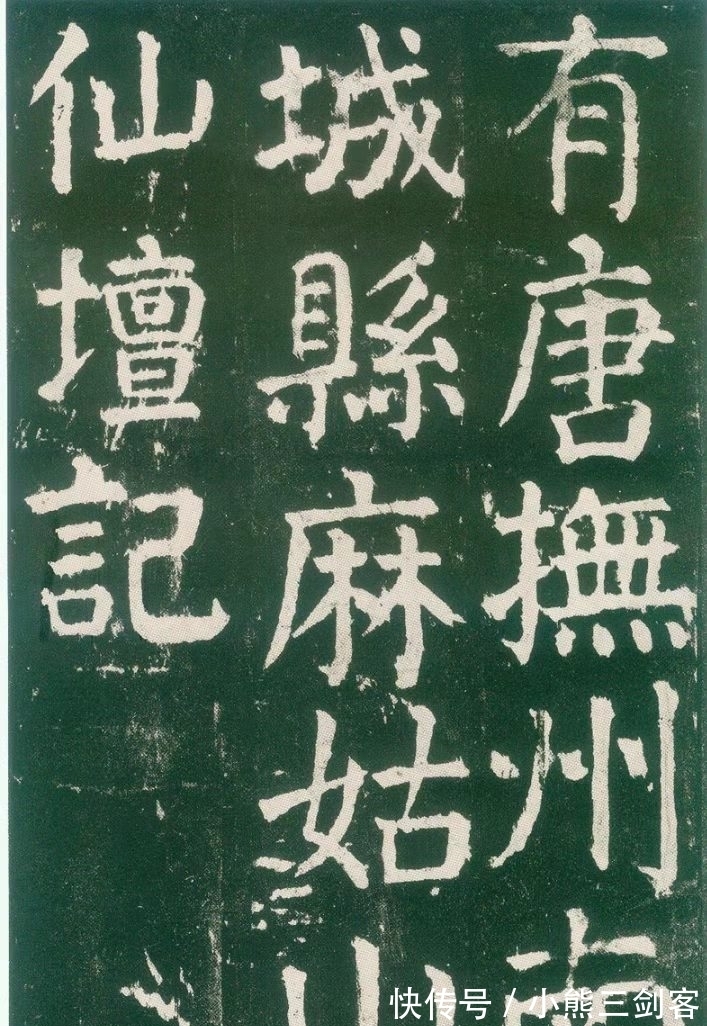 有唐撫州
城縣麻姑山
仙壇記
快传号 / 小熊三剑客